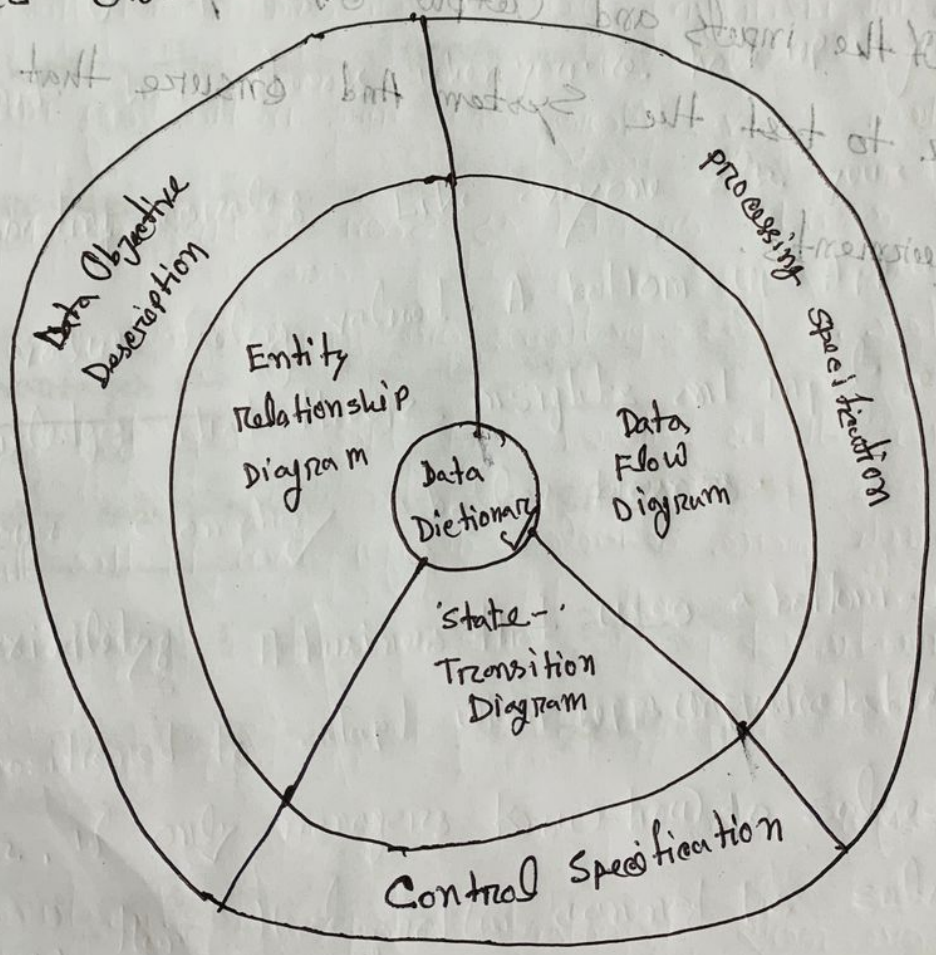 Data Objective
Description
Processing Specification
Entity
Relationship
Diagram
Data
Flow
Digrum
Data
Dictionary
State-
Transition
Diagram
Control Specification